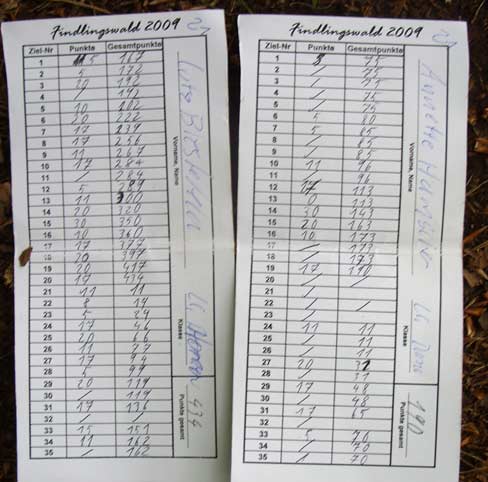 Findlingswald 2009
Ziel-Nr Punkte Gesamtpunkte
1 5 167
2 5 172
3 20 192
4 / 192
5 10 202
6 20 222
7 17 239
8 17 256
9 11 267
10 17 284
11 / 284
12 5 289
13 11 300
14 20 320
15 30 350
16 10 360
17 17 377
18 20 397
19 20 417
20 17 434
21 11 11
22 8 19
23 5
24 17 46
25 20 66
26 11 77
27 17 94
28 5 99
29 20 119
30 / 119
31 17 136
32 /
33 15 151
34 11 162
35 / 162
Vorname, Name
Klasse
Punkte gesamt 434
Findlingswald 2009
Ziel-Nr Punkte Gesamtpunkte
1 75
2 / 75
3 / 75
4 / 75
5 / 75
6 5 80
7 5 85
8 / 85
9 / 85
10 11 96
11 / 96
12 17 113
13 0 113
14 30 143
15 20 163
16 10 173
17 / 173
18 / 173
19 17 190
20 / /
21 /
22 / /
23 /
24 11 11
25 / 11
26 / 11
27 20 31
28 / 31
29 17 48
30 / 48
31 17 65
32 /
33 5 70
34 / 70
35 / 70
Vorname, Name Annette
Klasse
Punkte gesamt 190